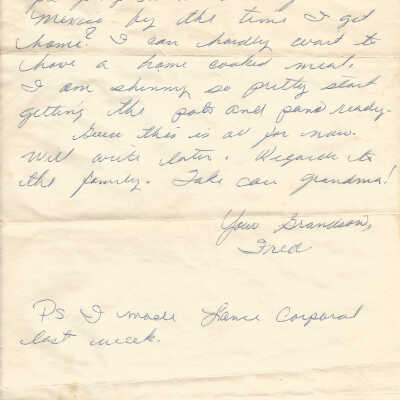 Mexico by the time I get
home? I can hardly wait to
have a home cooked meal.
I am skinny so pretty start
getting the pots and pans ready.
Guess this is all for now.
Will write later. Regards to
the family. Take care grandma!
Your Grandson,
Fred
Ps. I made Lance Corporal
last week.